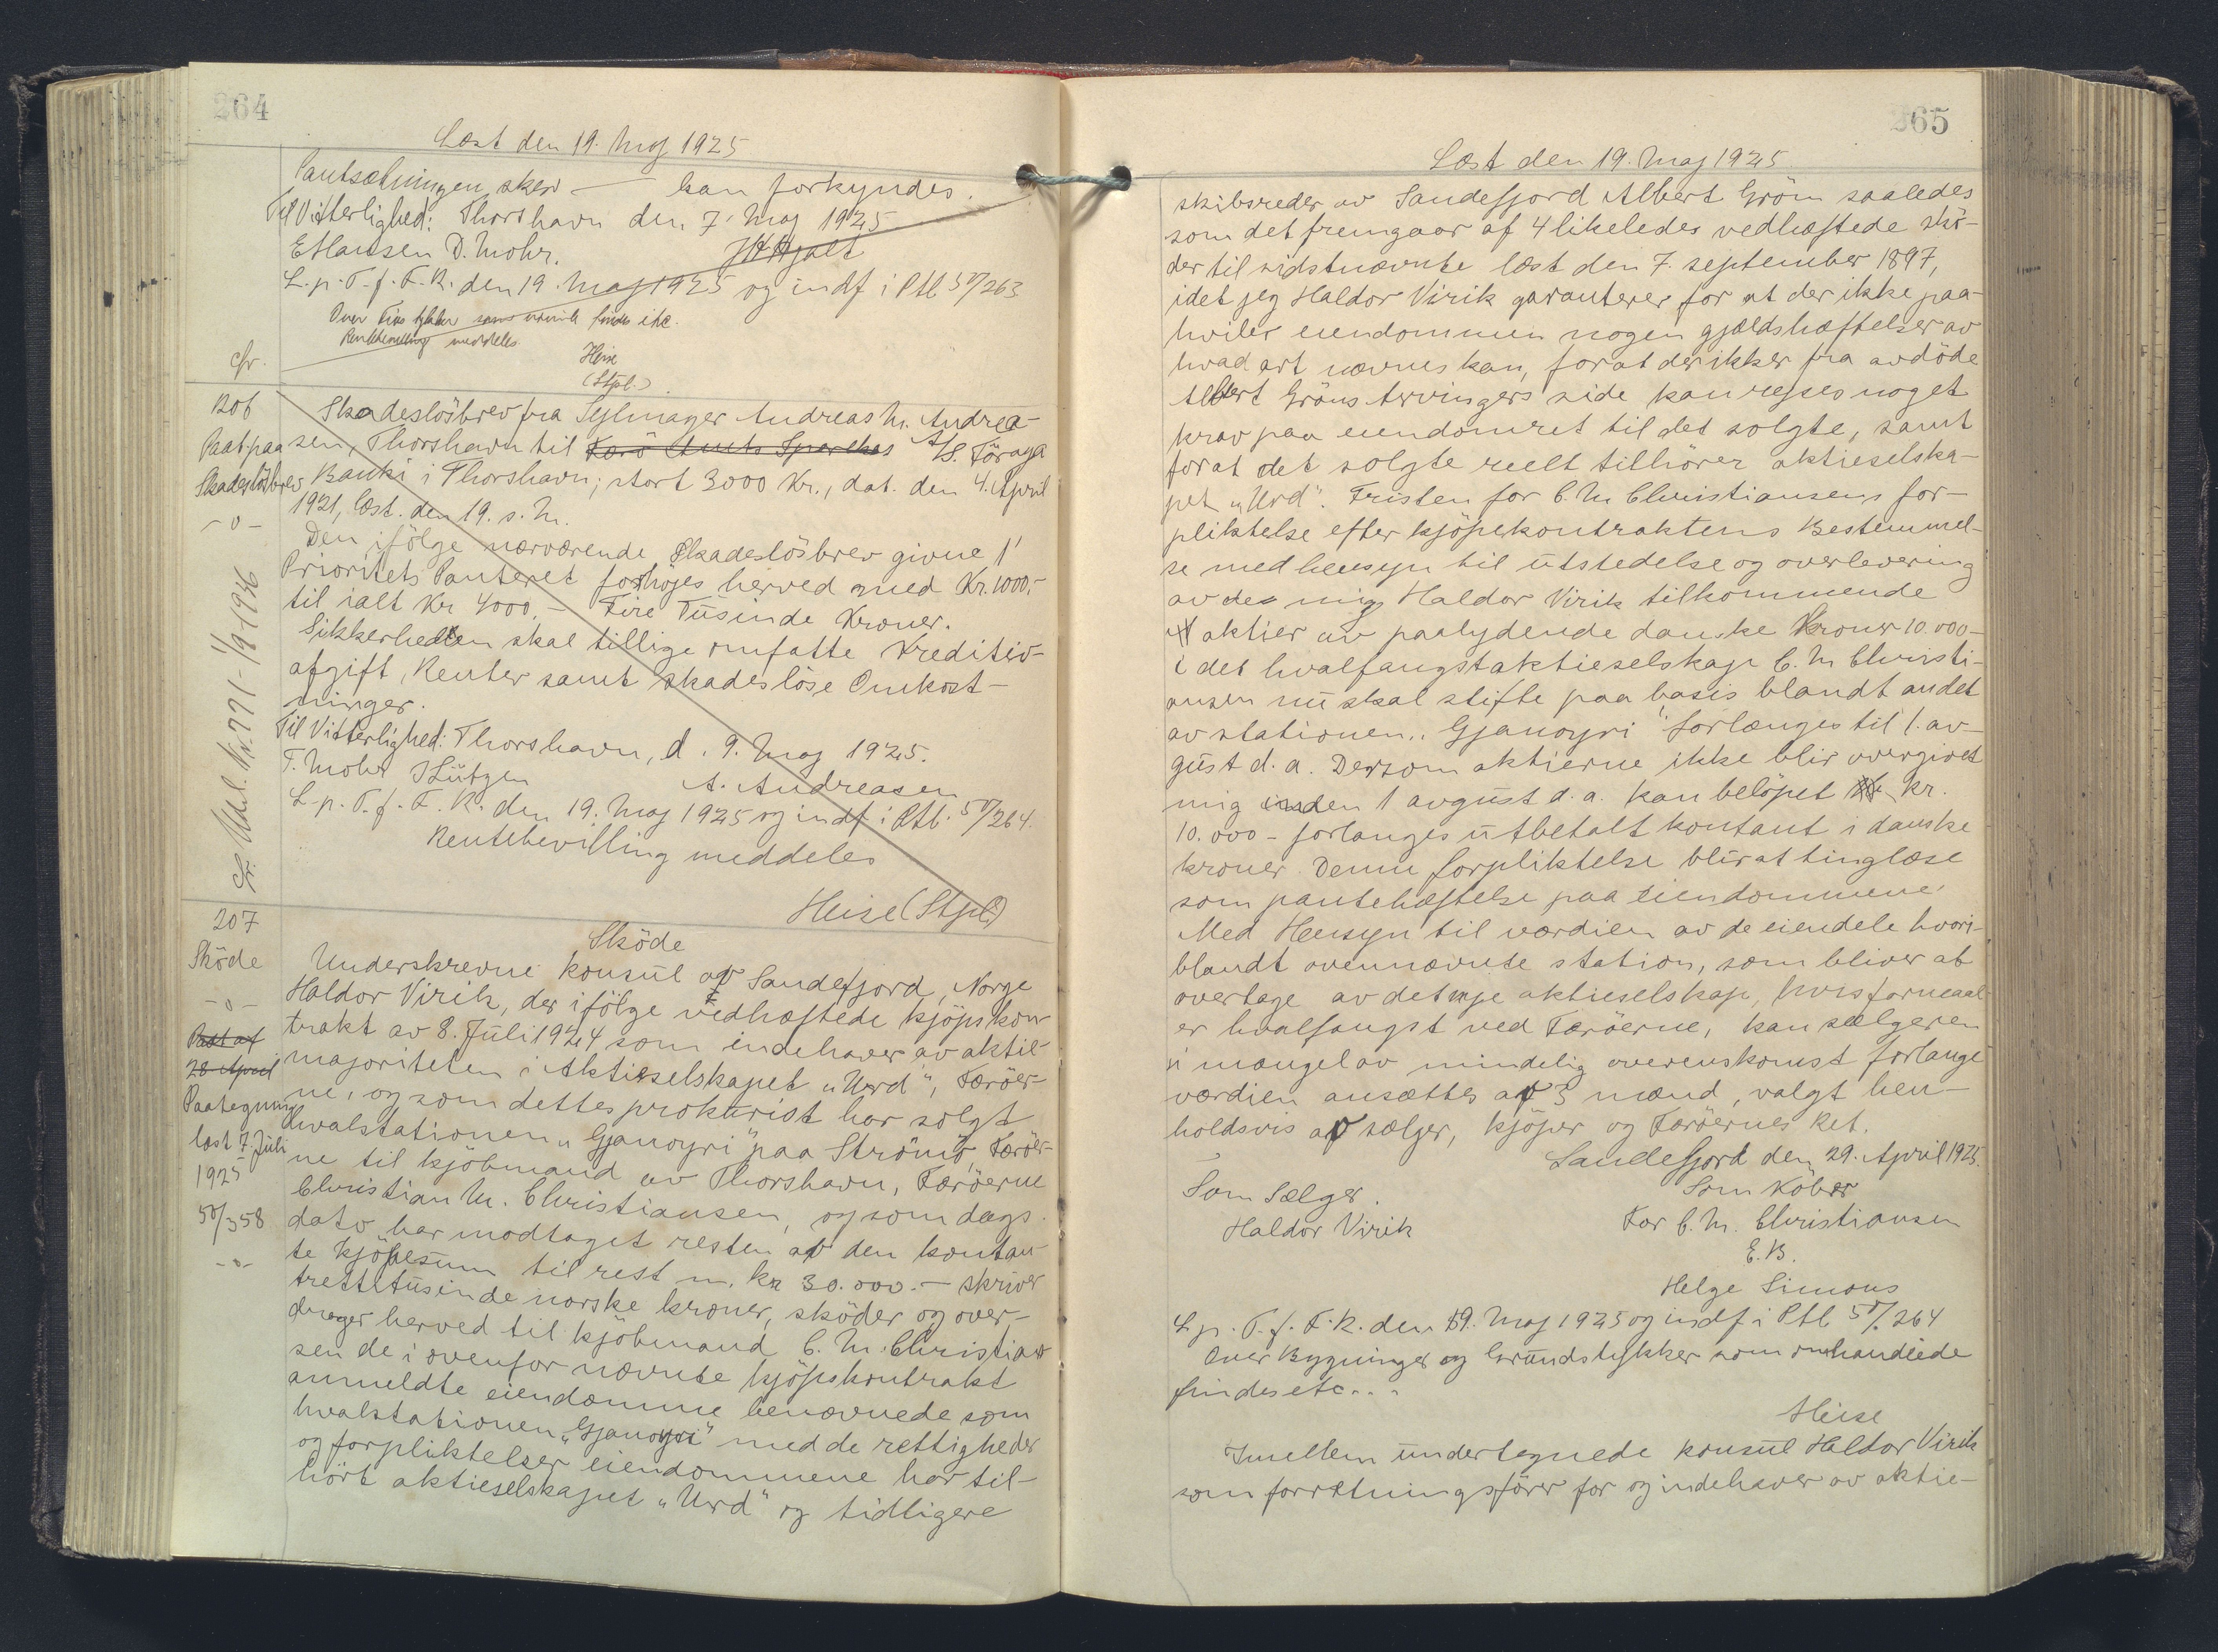 264
Læst den 19. Maj 1925
Pantsætningen sker — kan forkyndes.
Til Vitterlighed: Thorshavn den 7' Maj 1925
E Hansen D. Mohr. J H Hjalt
L. p. T. f. F. R. den 19. Maj 1925 og indf i Ptb 50/263
findes etc.
Rentebevilling meddeles.
Heise
(Stpl.)
Cfr.
206
Paat. paa
Skadeslösbrev
-o-
Skadeslösbrev fra Sejlmager Andreas M. Andrea-
sen, Thorshavn til Færö Amts Sparekas A/S. Föroya
Banki i Thorshavn, stort 3000 Kr., dat. den 4. April
1921, læst. den 19. s. M.
Den ifölge nærværende Skadeslösbrev givne 1'
Prioritets Panteret forhöjes herved med Kr. 1000,-
til ialt Kr 4000,- Fire Tusinde Kroner.
Sikkerheden skal tillige omfatte Kreditiv-
afgift, Renter samt skadeslöse Omkost-
ninger.
Til Vitterlighed: Thorshavn, d. 9. Maj 1925.
T. Mohr J Lützen A. Andreasen
L. p. T. f. F. R. den 19. Maj 1925 og indf i Ptb. 50/264.
Rentebevilling meddeles
Heise (Stpl.)
Nr. 771- 1/9-1936
207
Sköde
-o-
Paat af
28 April
Paategning
læst 7. Juli
1925
50/358
-o-
Sköde
Underskrevne konsul av Sandefjord, Norge
Haldor Virik, der ifölge vedhæftede kjöpskon-
trakt av 8. Juli 1924 som indehaver av aktie-
majoriteten i Aktieselskapet "Urd", Færöer-
ne, og som dettes prokurist har solgt
hvalstationen "Gjanoyri" paa Strömö, Færöer-
ne til kjöbmand av Thorshavn, Færöerne
Christian M. Christiansen, og som dags
dato har modtaget resten av den kontan-
te kjöbesum til rest n. kr 30.000.- skriver
trettitusinde norske kroner, sköder og over-
drager herved til kjöbmand C. M. Christian-
sen de i ovenfor nævnte kjöpskontrakt
anmeldte eiendomme benævnede som
hvalstationen "Gjanoyri" med de rettigheder
og forpliktelser eiendommene har til-
hört aktieselskapet "Urd" og tidligere
265
Læst den 19. Maj 1925
skibsreder av Sandefjord Albert Grön saaledes
som det fremgaar af 4 likeledes vedhæftede skö-
der til sidstnævnte læst den 7. september 1897,
idet jeg Haldor Virik garanterer for at der ikke paa-
hviler eiendommen nogen gjældshæftelser av
hvad art nævnes kan, for at der ikker fra avdöde
Albert Gröns arvingers side kan rejses noget
krav paa eiendomret til det solgte, samt
for at det solgte reelt tilhörer aktieselska-
pet "Urd". Fristen for C. M Christiansens for-
pliktelse efter kjöpekontraktens Bestemmel-
se med hensyn til utstedelse og overlevering
av de mig Haldor Virik tilkommende
aktier av paalydende danske Kroner 10.000-
i det hvalfangstaktieselskap C. M Christi-
ansen nu skal stifte paa basis blandt andet
av stationen "Gjanoyri" forlænges til 1. av-
gust d. a. Dersom aktierne ikke blir overgivet
mig inden 1 avgust d. a. kan belöpet kr.
10.000- forlanges utbetalt kontant i danske
kroner. Denne forpliktelse blir at tinglæse
som pantehæftelse paa eiendommene.
Med Hensyn til værdien av de eiendele hvori-
blandt ovennævnte station, som bliver at
overtage av det nye aktieselskap, hvis formaal
er hvalfangst ved Færöerne, kan sælgeren
i mangel av mindelig overenskomst forlange
værdien ansættes av 3 mænd, valgt hen-
holdsvis av sælger, kjöper og Færöernes Ret.
Sandefjord den 29. April 1925.
Som Sælger. Som Köber
Haldor Virik For C. M. Christiansen
E. B.
Helge Simons
L. p. T. f. F. R. den 19. Maj 1925 og indf i Ptb 50/264
Over Bygninger og Grundstykker som omhandlede
findes etc...
Heise
Imellem undertegnede konsul Haldor Virik
som forretningsförer for og indehaver av aktie-